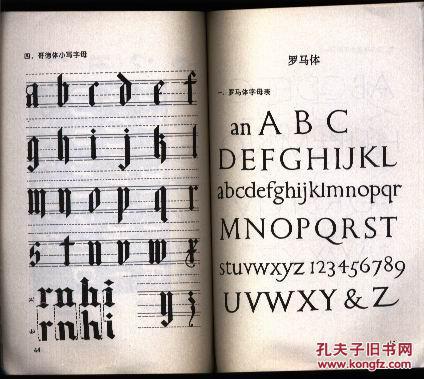 四、哥德体小写字母
a b c d e f
g h i j k l
m n o p q r
s t u v w x
rnhi
y z
rnhi
44
罗马体
一、罗马体字母表
an A B C
DEFGHIJKL
abcdefghijklmnopqr
MNOPQRST
stuvwxyz 123456789
UVWXY & Z
孔夫子旧书网